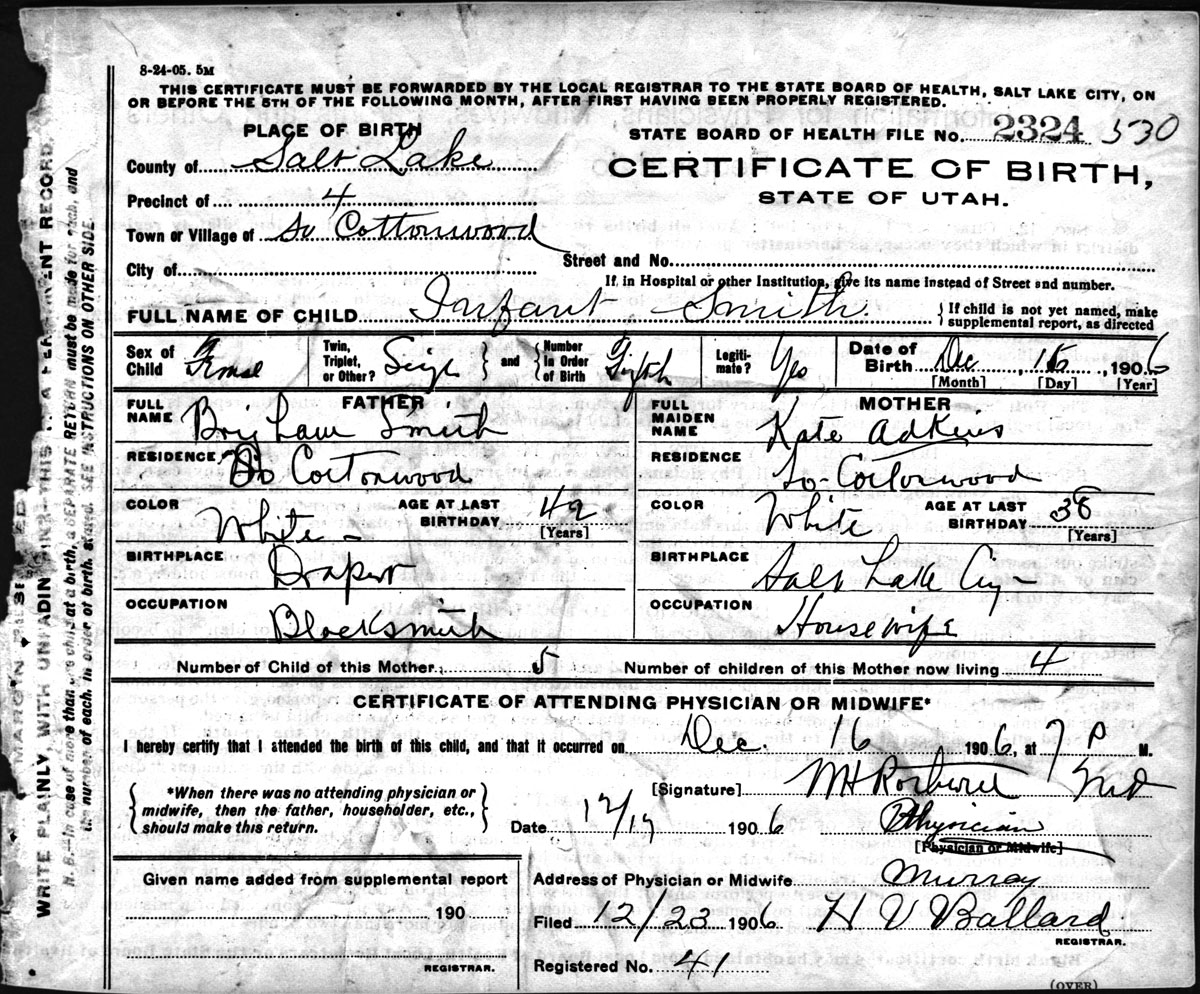 8-24-05. 5M
THIS CERTIFICATE MUST BE FORWARDED BY THE LOCAL REGISTRAR TO THE STATE BOARD OF HEALTH, SALT LAKE CITY, ON
OR BEFORE THE 5TH OF THE FOLLOWING MONTH, AFTER FIRST HAVING BEEN PROPERLY REGISTERED.
PLACE OF BIRTH
STATE BOARD OF HEALTH FILE No. 2324 530
County of Salt Lake
CERTIFICATE OF BIRTH,
STATE OF UTAH.
Precinct of 4
Town or Village of So Cottonwood
City of
Street and No.
If, in Hospital or other Institution, give its name instead of Street and number.
FULL NAME OF CHILD Infant Smith
{ If child is not yet named, make
supplemental report, as directed
Sex of Child
Twin, Triplet, or Other?
} and { Number In Order of Birth
Legitimate? Yes
Date of Birth Dec , , 1906
[Month] [Day] [Year]
FATHER
FULL NAME Brigham Smith
RESIDENCE So Cottonwood
COLOR White
AGE AT LAST BIRTHDAY 42
[Years]
BIRTHPLACE Draper
OCCUPATION Blacksmith
MOTHER
FULL MAIDEN NAME Kate Adkins
RESIDENCE So Cottonwood
COLOR White
AGE AT LAST BIRTHDAY 38
[Years]
BIRTHPLACE Salt Lake City
OCCUPATION Housewife
Number of Child of this Mother 5 Number of children of this Mother now living 4
CERTIFICATE OF ATTENDING PHYSICIAN OR MIDWIFE*
I hereby certify that I attended the birth of this child, and that it occurred on Dec. 16 1906, at 7 P M.
{ *When there was no attending physician or
midwife, then the father, householder, etc.,
should make this return. }
[Signature] MD
Date 12/ 1906
Physician
[Physician or Midwife]
Given name added from supplemental report
190
REGISTRAR.
Address of Physician or Midwife Murray
Filed 12/23 1906 H V Ballard
REGISTRAR.
Registered No. 41
(OVER)
WRITE PLAINLY WITH UNFADING INK—THIS IS A PERMANENT RECORD.
N. B.—In case of more than one child at a birth, a SEPARATE RETURN must be made for each, and
the number of each, in order of birth, stated. SEE INSTRUCTIONS ON OTHER SIDE.